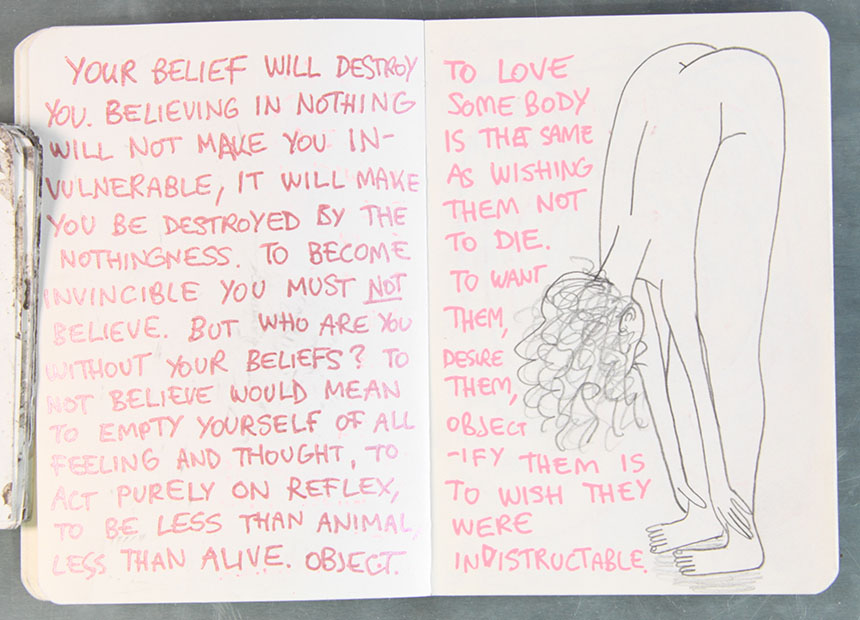 YOUR BELIEF WILL DESTROY
YOU. BELIEVING IN NOTHING
WILL NOT MAKE YOU IN-
VULNERABLE, IT WILL MAKE
YOU BE DESTROYED BY THE
NOTHINGNESS. TO BECOME
INVINCIBLE YOU MUST NOT
BELIEVE. BUT WHO ARE YOU
WITHOUT YOUR BELIEFS? TO
NOT BELIEVE WOULD MEAN
TO EMPTY YOURSELF OF ALL
FEELING AND THOUGHT, TO
ACT PURELY ON REFLEX,
TO BE LESS THAN ANIMAL,
LESS THAN ALIVE. OBJECT.
TO LOVE
SOMEBODY
IS THE SAME
AS WISHING
THEM NOT
TO DIE.
TO WANT
THEM,
DESIRE
THEM,
OBJECT
-IFY THEM IS
TO WISH THEY
WERE
INDISTRUCTABLE.